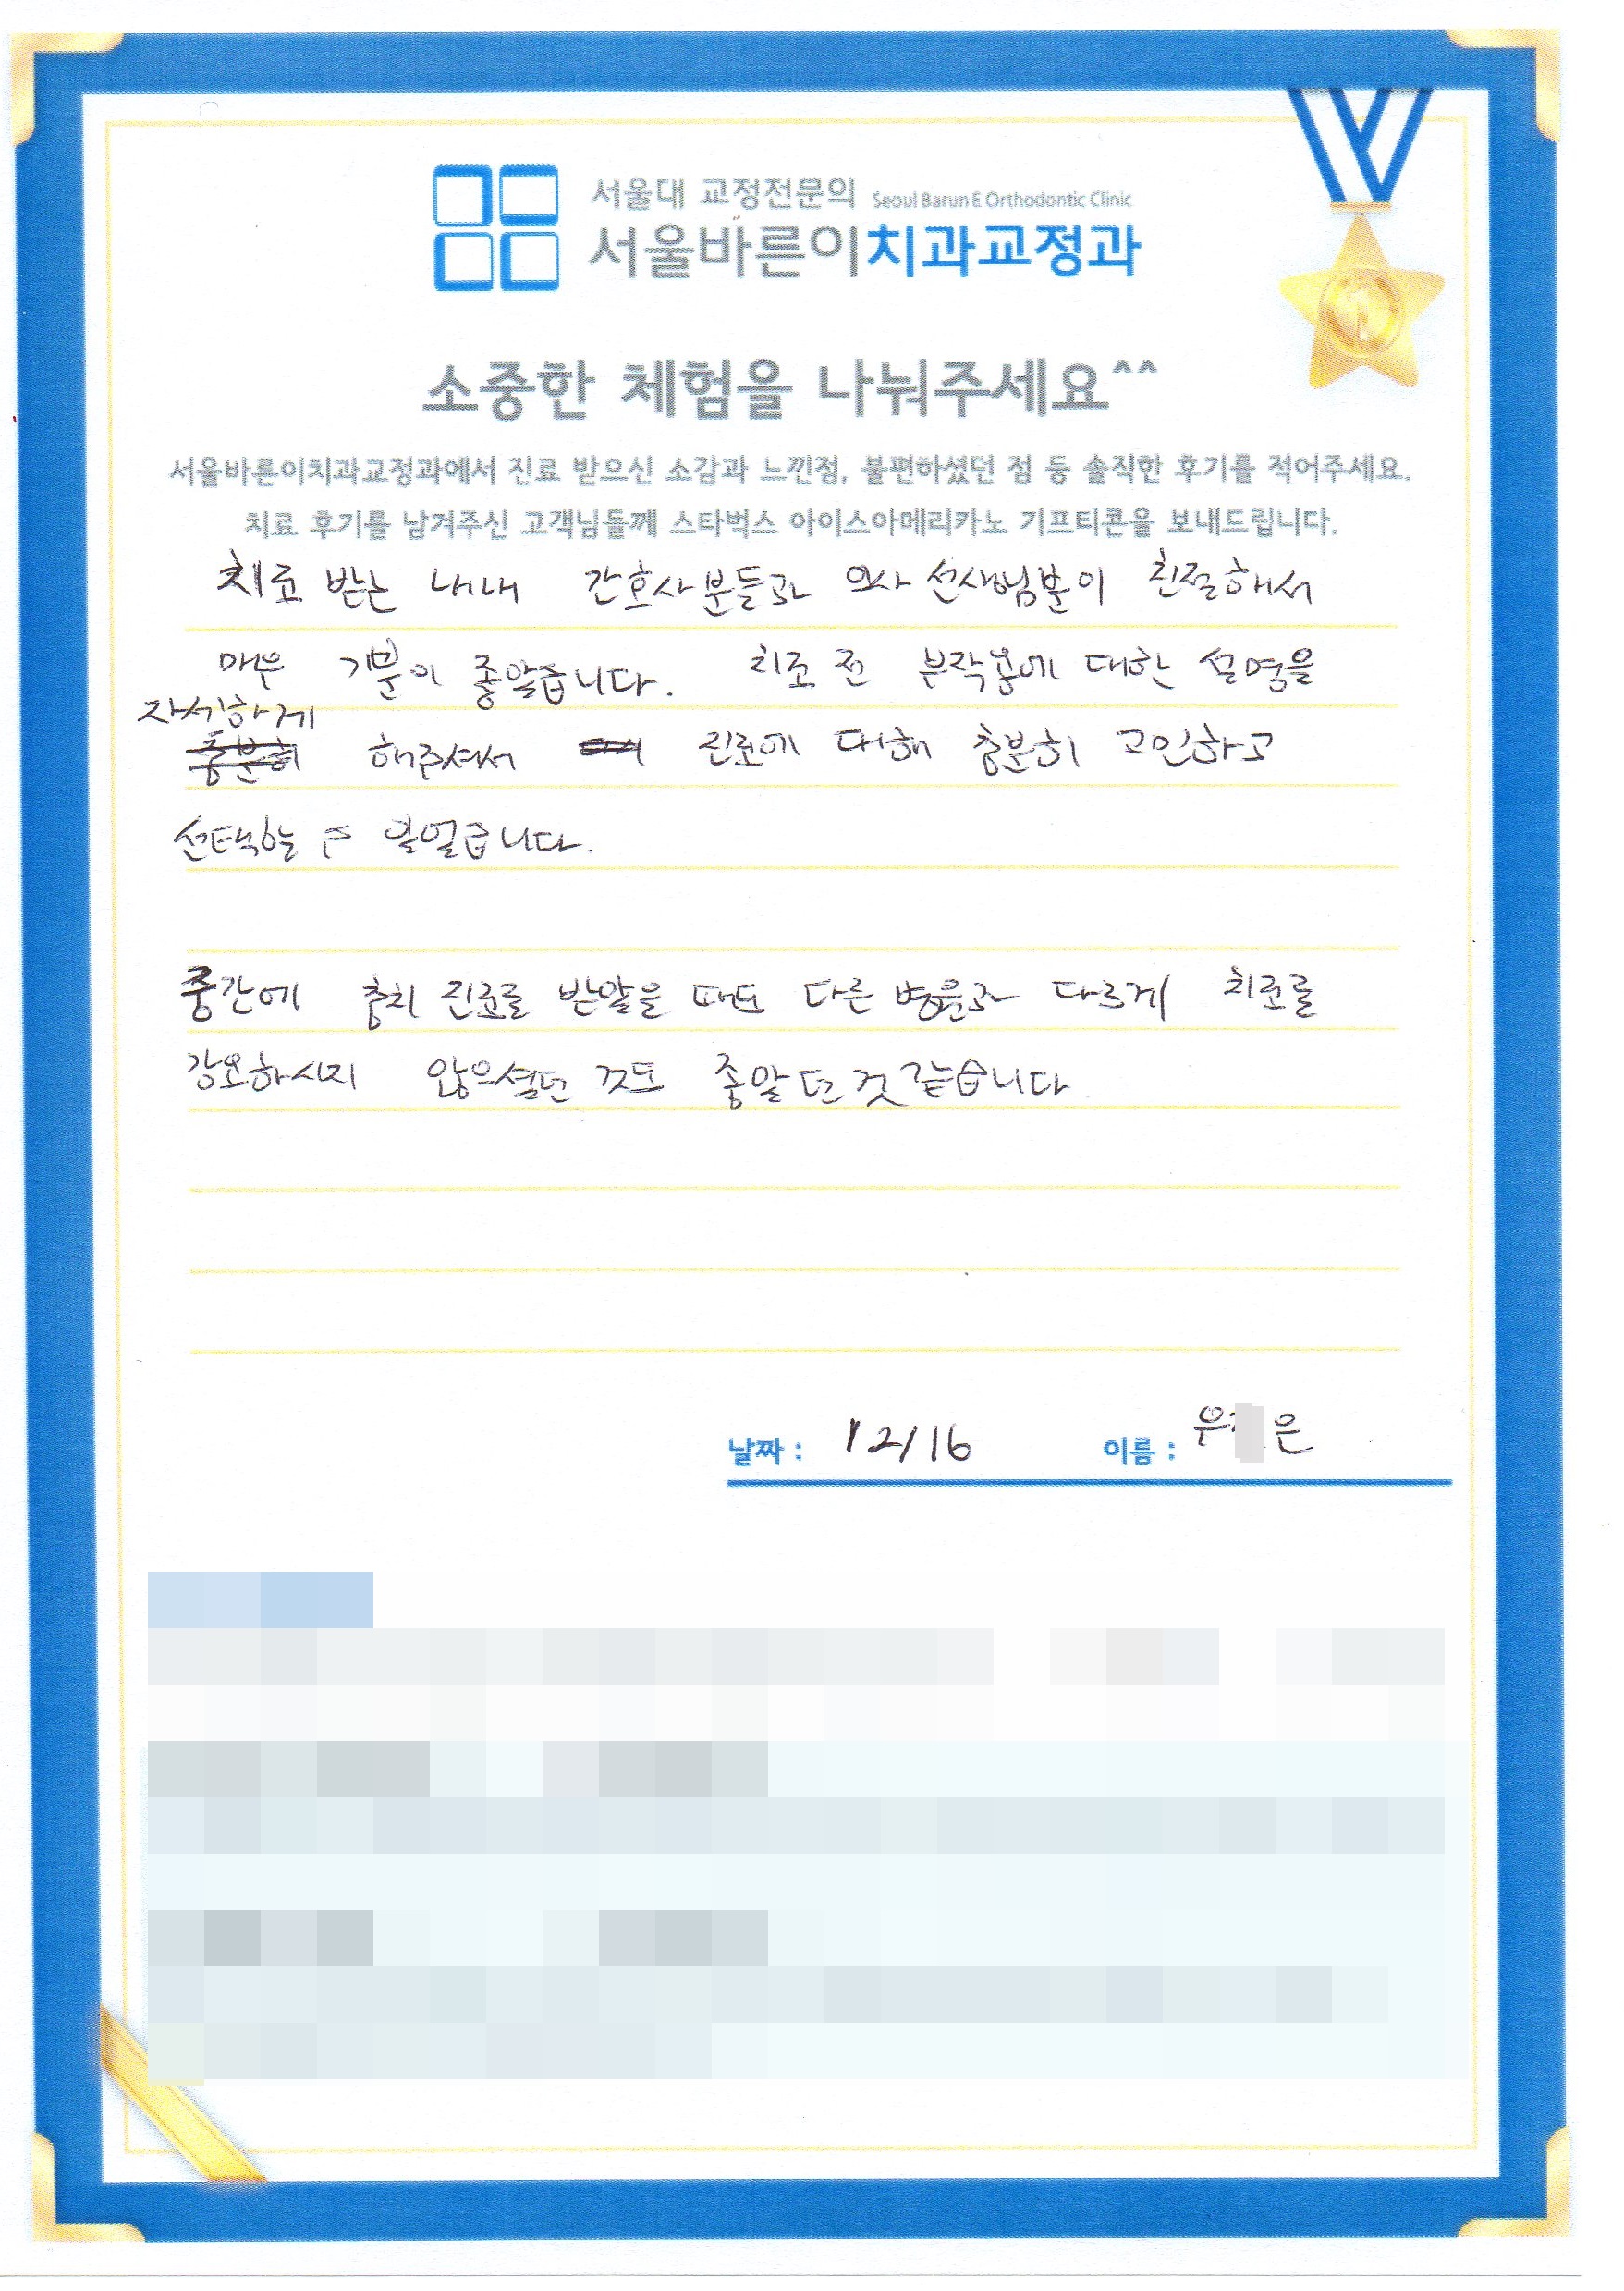 서울대 교정전문의 Seoul Barun E Orthodontic Clinic
서울바른이치과교정과
소중한 체험을 나눠주세요^^
서울바른이치과교정과에서 진료 받으신 소감과 느낀점, 불편하셨던 점 등 솔직한 후기를 적어주세요.
치료 후기를 남겨주신 고객님들께 스타벅스 아이스아메리카노 기프티콘을 보내드립니다.
치료 받는 내내 간호사분들과 의사 선생님분이 친절해서
매우 기분이 좋았습니다. 치료 전 부작용에 대한 설명을
자세하게
충분히 해주셔서 진료에 대해 충분히 고민하고
선택하는 수 있었습니다.
중간에 충치 진료를 받았을 때도 다른 병원과 다르게 치료를
강요하시지 않으셨던 것도 좋았던 것 같습니다
날짜 : 12/16 이름 : 우 은